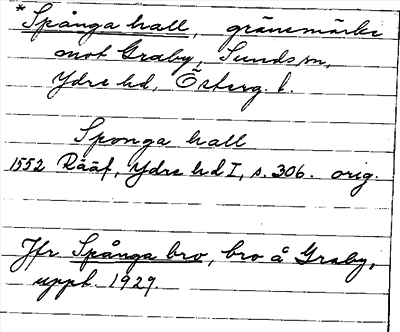 *Spånga hall, gränsmärke
mot Graby, Sunds sn,
Ydre hd, Österg. l.
Sponga hall
1552 Rääf, Ydre hd I, s. 306. orig.
Jfr Spånga bro, bro å Graby,
uppt. 1929.